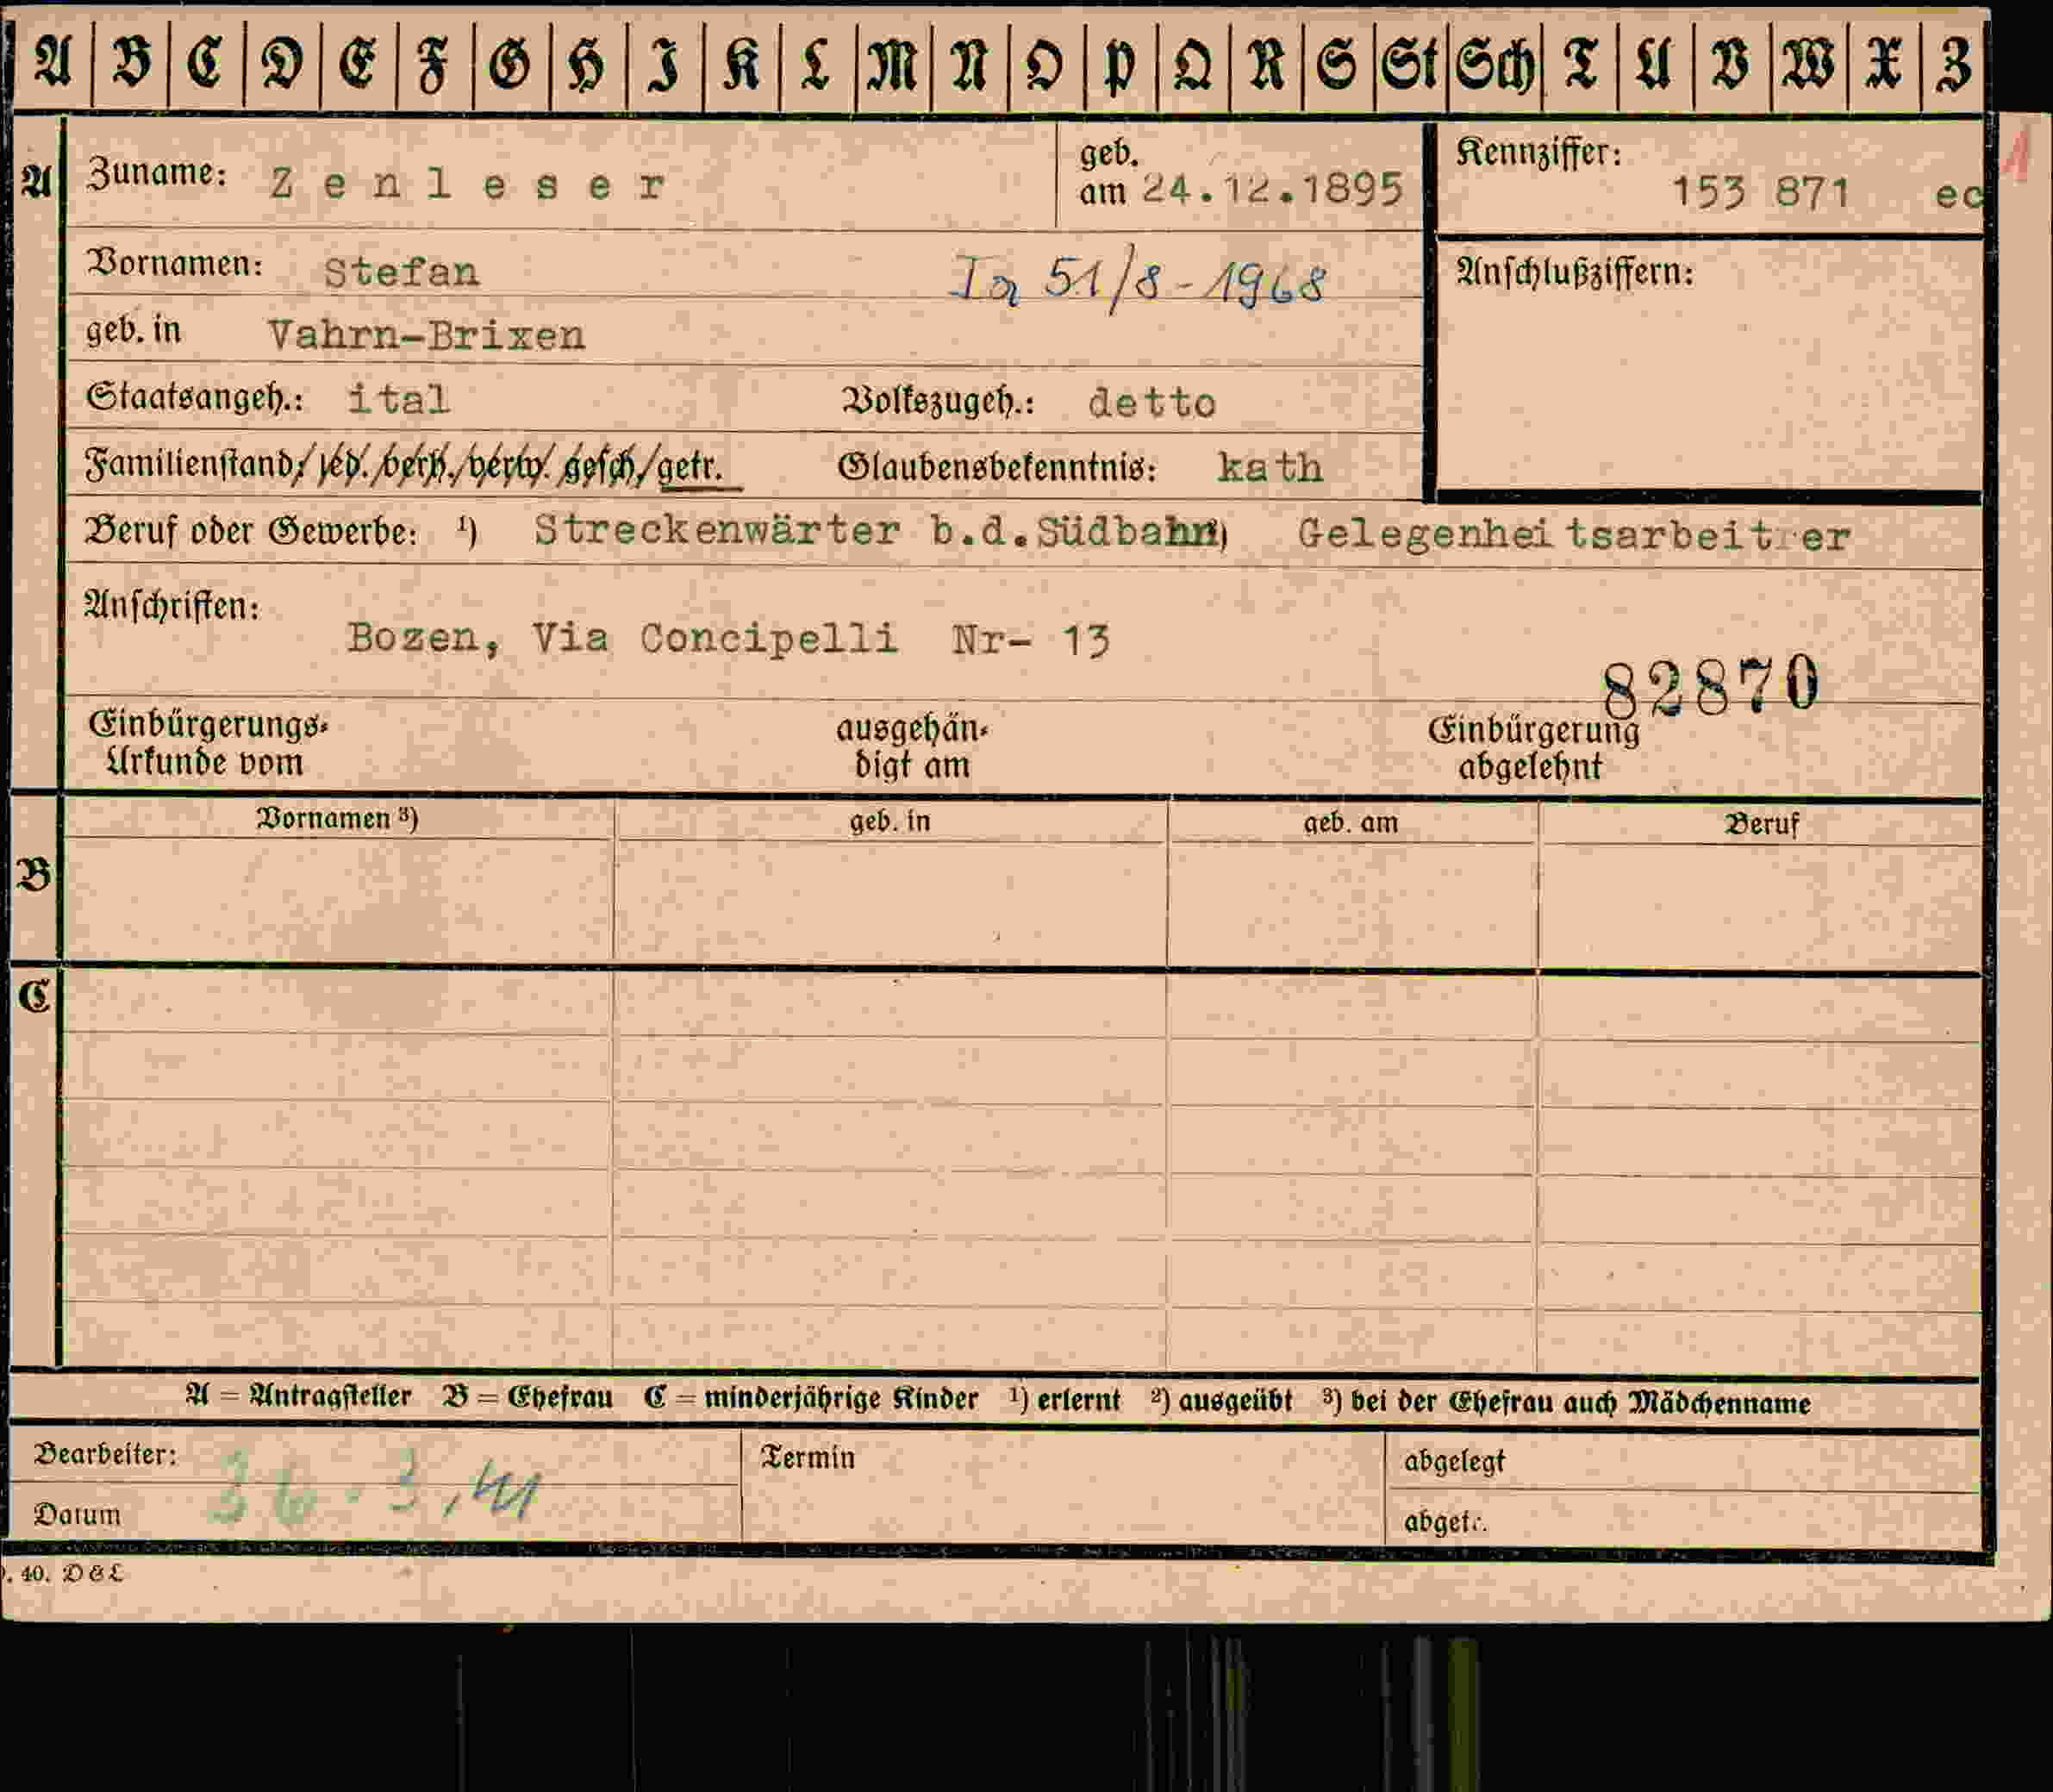 A B C D E F G H I K L M N O P Q R S St Sch T U V W X Z
A Zuname: Zenleser geb. am 24.12.1895 Kennziffer: 153 871 ec 1
Vornamen: Stefan Ia 51/8-1968 Anschlußziffern:
geb. in Vahrn-Brixen
Staatsangeh.: ital Volkszugeh.: detto
Familienstand: led./verh./verw./gesch./getr. Glaubensbekenntnis: kath
Beruf oder Gewerbe: ¹) Streckenwärter b.d.Südbahn) Gelegenheitsarbeit er
Anschriften:
Bozen, Via Concipelli Nr- 13
82870
Einbürgerungs- ausgehän- Einbürgerung
Urkunde vom digt am abgelehnt
Vornamen ³) geb. in geb. am Beruf
B
C
A = Antragsteller B = Ehefrau C = minderjährige Kinder ¹) erlernt ²) ausgeübt ³) bei der Ehefrau auch Mädchenname
Bearbeiter: Termin abgelegt
Datum 3,41 abgef.
. 40. D & L